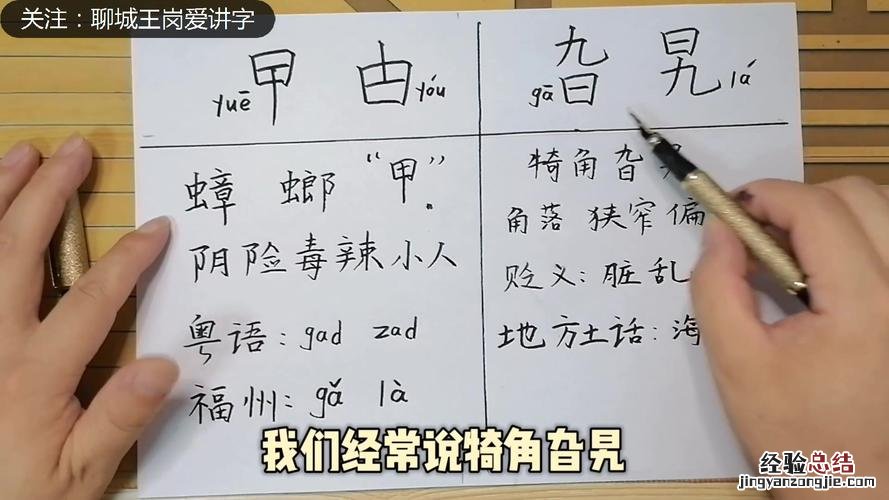 关注：聊城王岗爱讲字
yuē 曱 甴 yóu
蟑 螂 “曱”.
阴险毒辣小人
粤语: gad zad
福州: gǎ là
gā 旮 旯 lá
犄角旮旯
角落 狭窄 偏
贬义: 脏乱
地方土话: 海
我们经常说犄角旮旯
经验总结
jingyanzongjie.com